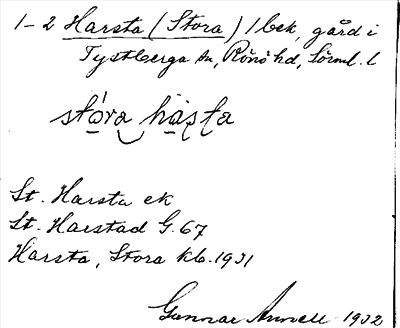 1-2 Harsta (Stora) 1 bek, gård i
Tystberga sn, Rönö hd, Sörml. l
stóra hàsta
St. Harsta ek
St. Harstad G. 67
Harsta, Stora kb. 1931
Gunnar Annell 1932